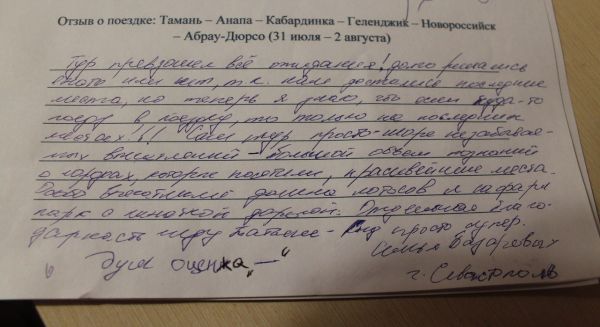 Отзыв о поездке: Тамань – Анапа – Кабардинка – Геленджик – Новороссийск
– Абрау-Дюрсо (31 июля – 2 августа)
Тур превзошел все ожидания! долго решались
ехать или нет, т.к. нам достались последние
места, но теперь я знаю, что если куда-то
поеду в поездку, то только на последних
местах!!! Сам тур просто - море незабывае-
мых впечатлений – большой объем познаний
о городах, которые посетили, красивейшие места.
впечатлила долина лотосов и сафари
парк с канатной дорогой. Отдельная благо-
дарность гиду Татьяне - гид просто супер.
Семья
г. Севастополь
Тур оценка – " "